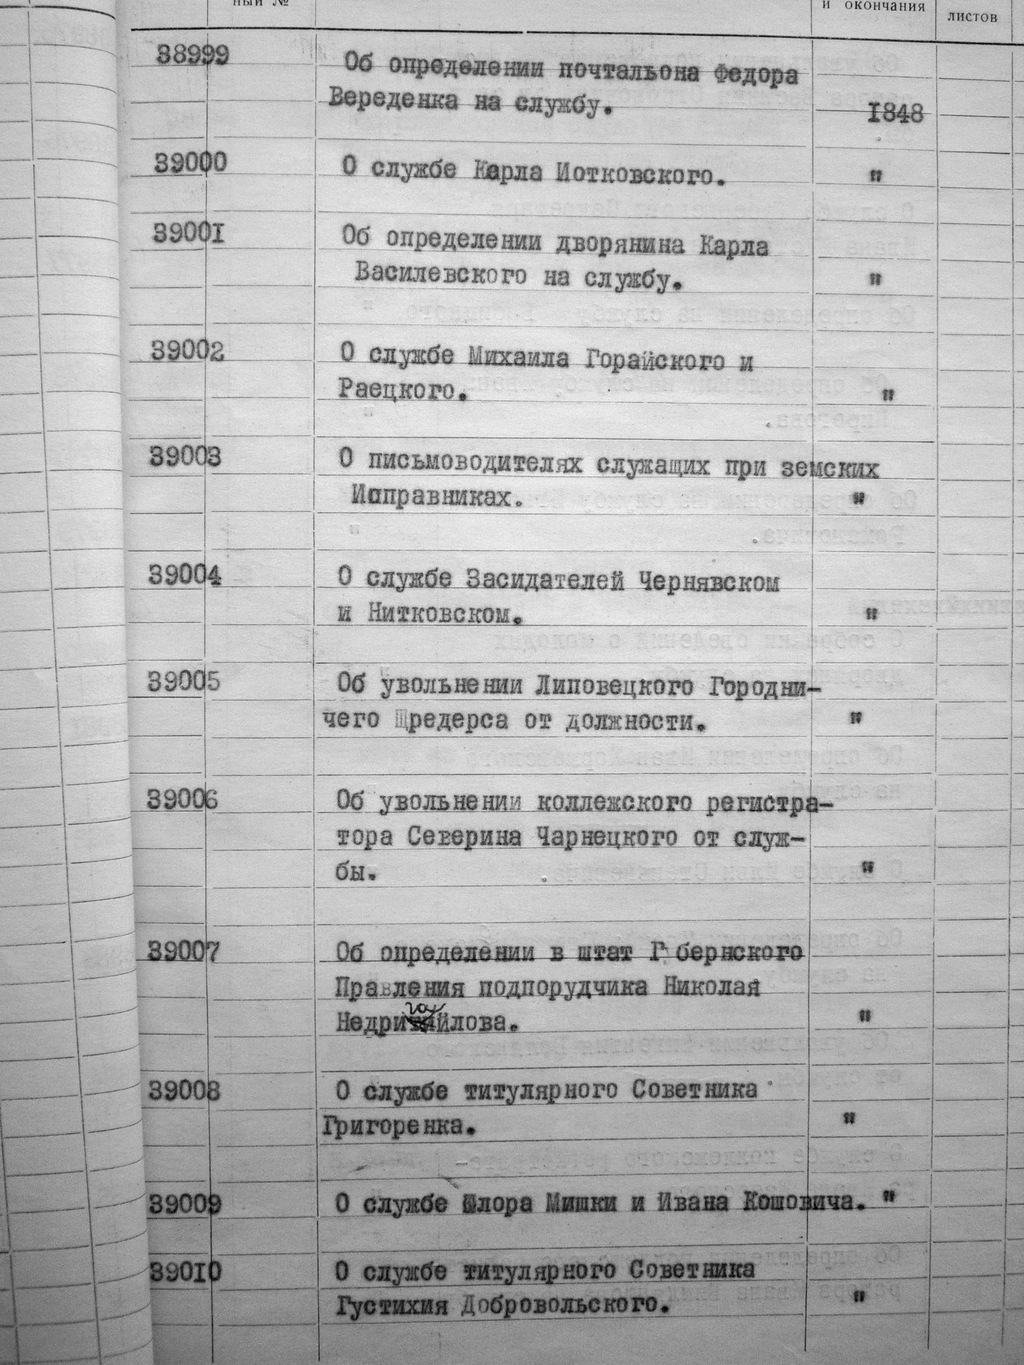 ный №
и окончания
листов
38999 Об определении почтальона Федора
Вереденка на службу. 1848
39000 О службе Карла Иотковского. "
39001 Об определении дворянина Карла
Василевского на службу. "
39002 О службе Михаила Горайского и
Раецкого. "
39003 О письмоводителях служащих при земских
Исправниках. "
39004 О службе Засидателей Чернявском
и Нитковском. "
39005 Об увольнении Липовецкого Городни-
чего Шредерса от должности. "
39006 Об увольнении коллежского регистра-
тора Северина Чарнецкого от служ-
бы. "
39007 Об определении в штат Г бернского
Правления подпорудчика Николая
"
39008 О службе титулярного Советника
Григоренка. "
39009 О службе Флора Мишки и Ивана Кошовича. "
39010 О службе титулярного Советника
Густихия Добровольского. "